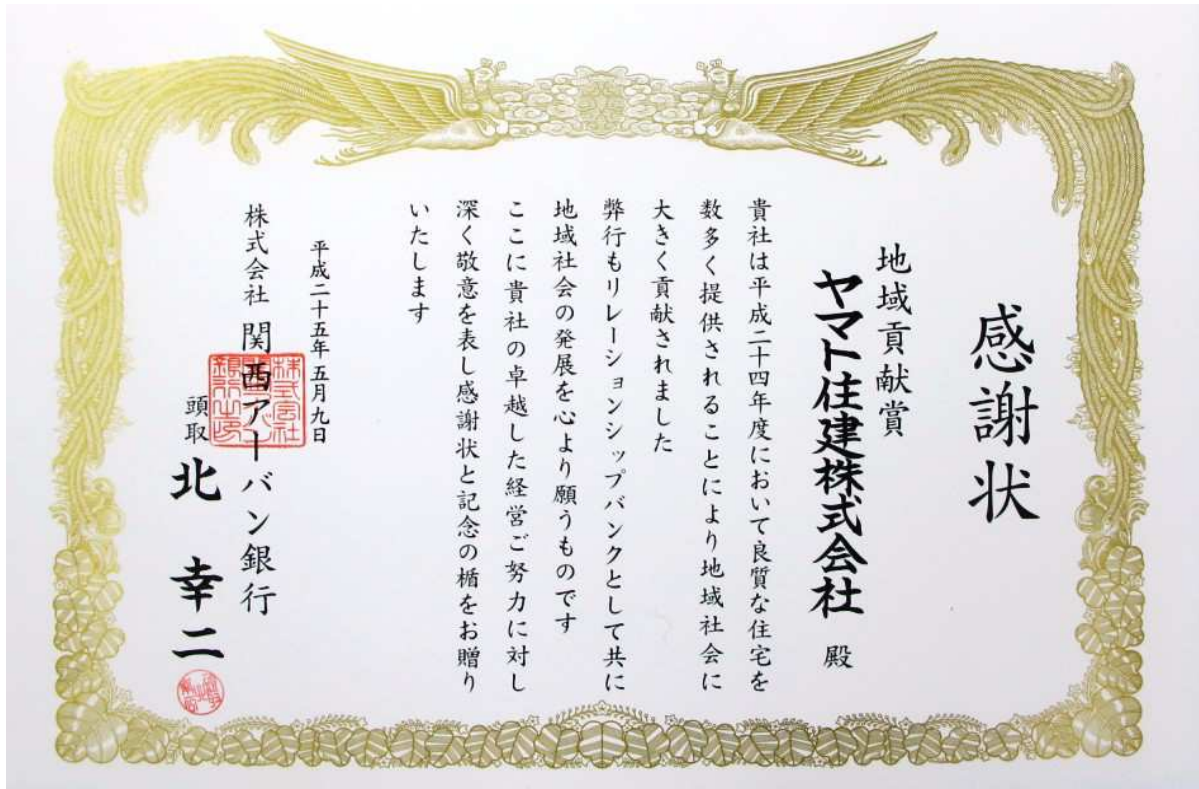 感謝状
地域貢献賞
ヤマト住建株式会社 殿
貴社は平成二十四年度において良質な住宅を
数多く提供されることにより地域社会に
大きく貢献されました
弊行もリレーションシップバンクとして共に
地域社会の発展を心より願うものです
ここに貴社の卓越した経営ご努力に対し
深く敬意を表し感謝状と記念の楯をお贈り
いたします
平成二十五年五月九日
株式会社 関西アーバン銀行
頭取 北 幸二